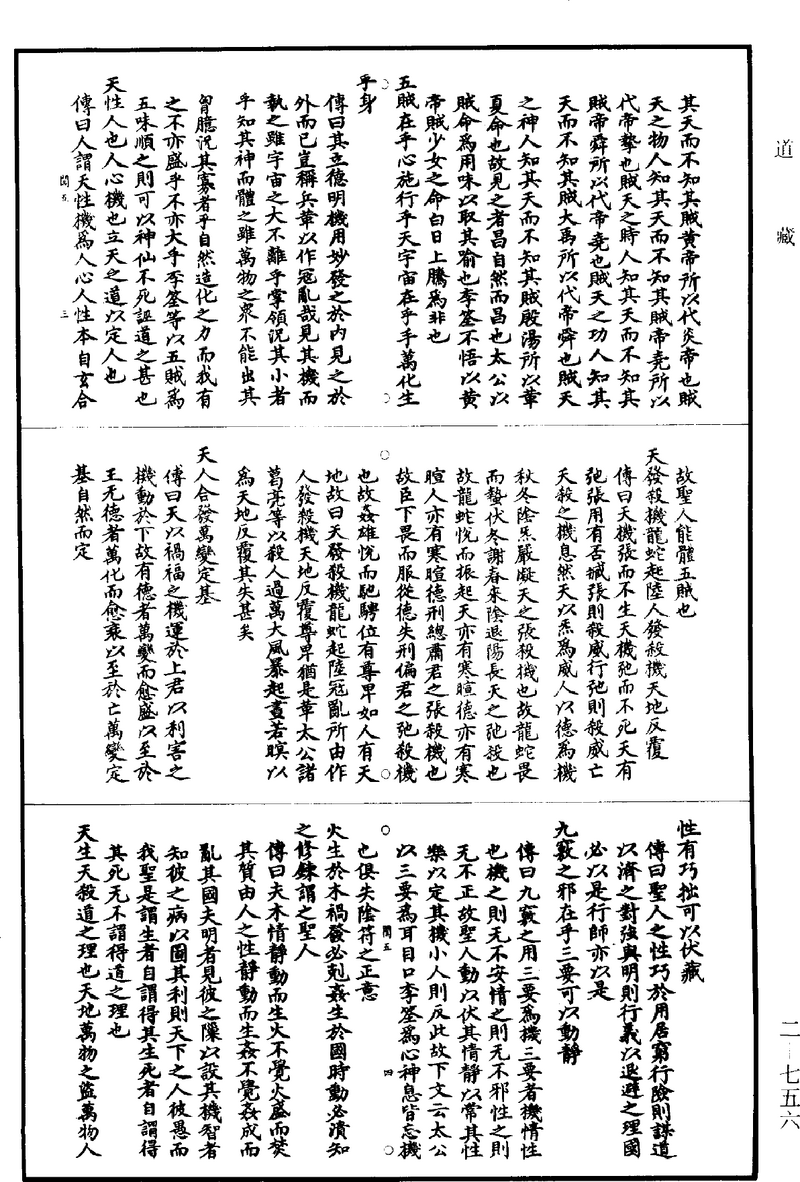 道藏
其天而不知其賊黃帝所以代炎帝也賊
天之物人知其天而不知其賊帝堯所以
代帝摯也賊天之時人知其天而不知其
賊帝舜所以代帝堯也賊天之功人知其
天而不知其賊大禹所以代帝舜也賊天
之神人知其天而不知其賊殷湯所以革
夏命也故見之者昌自然而昌也太公以
賊命為用味以取其喻也李筌不悟以黃
帝賊少女之命白日上騰為非也
五賊在乎心施行乎天宇宙在乎手萬化生
乎身
傳曰其立德明機用妙發之於內見之於
外而已豈稱兵革以作冦亂哉見其機而
執之雖宇宙之大不離乎掌領況其小者
乎知其神而體之雖萬物之衆不能出其
胷臆況其寡者乎自然造化之力而我有
之不亦盛乎不亦大乎李筌等以五賊為
五味順之則可以神仙不死誣道之甚也
天性人也人心機也立天之道以定人也
傳曰人謂天性機為人心人性本自玄合
閏五 三
故聖人能體五賊也
天發殺機龍蛇起陸人發殺機天地反覆
傳曰天機張而不生天機弛而不死天有
弛張用有否臧張則殺威行弛則殺威亡
天殺之機息然天以炁為威人以德為機
秋冬陰炁嚴凝天之張殺機也故龍蛇畏
而蟄伏冬謝春來陰退陽長天之弛殺也
故龍蛇悅而振起天亦有寒暄德亦有寒
暄人亦有寒暄德刑總肅君之張殺機也
故臣下畏而服從德失刑偏君之弛殺機
也故姦雄悅而馳騁位有尊卑如人有天
地故曰天發殺機龍蛇起陸冦亂所由作
人發殺機天地反覆尊卑猶是革太公諸
葛亮等以殺人過萬大風暴起晝若暝以
為天地反覆其失甚矣
天人合發萬變定基
傳曰天以禍福之機運於上君以利害之
機動於下故有德者萬變而愈盛以至於
王无德者萬化而愈衰以至於亡萬變定
基自然而定
性有巧拙可以伏藏
傳曰聖人之性巧於用居窮行險則謀道
以濟之對強與明則行義以退避之理國
必以是行師亦以是
九竅之邪在乎三要可以動靜
傳曰九竅之用三要為機三要者機情性
也機之則无不安情之則无不邪性之則
无不正故聖人動以伏其情靜以常其性
樂以定其機小人則反此故下文云太公
以三要為耳目口李筌為心神息皆忘機
也俱失陰符之正意
閏五 四
火生於木禍發必剋姦生於國時動必潰知
之修鍊謂之聖人
傳曰夫木情靜動而生火不覺火盛而焚
其質由人之性靜動而生姦不覺姦成而
亂其國夫明者見彼之隟以設其機智者
知彼之病以圖其利則天下之人彼愚而
我聖是謂生者自謂得其生死者自謂得
其死无不謂得道之理也
天生天殺道之理也天地萬物之盜萬物人
二—七五六